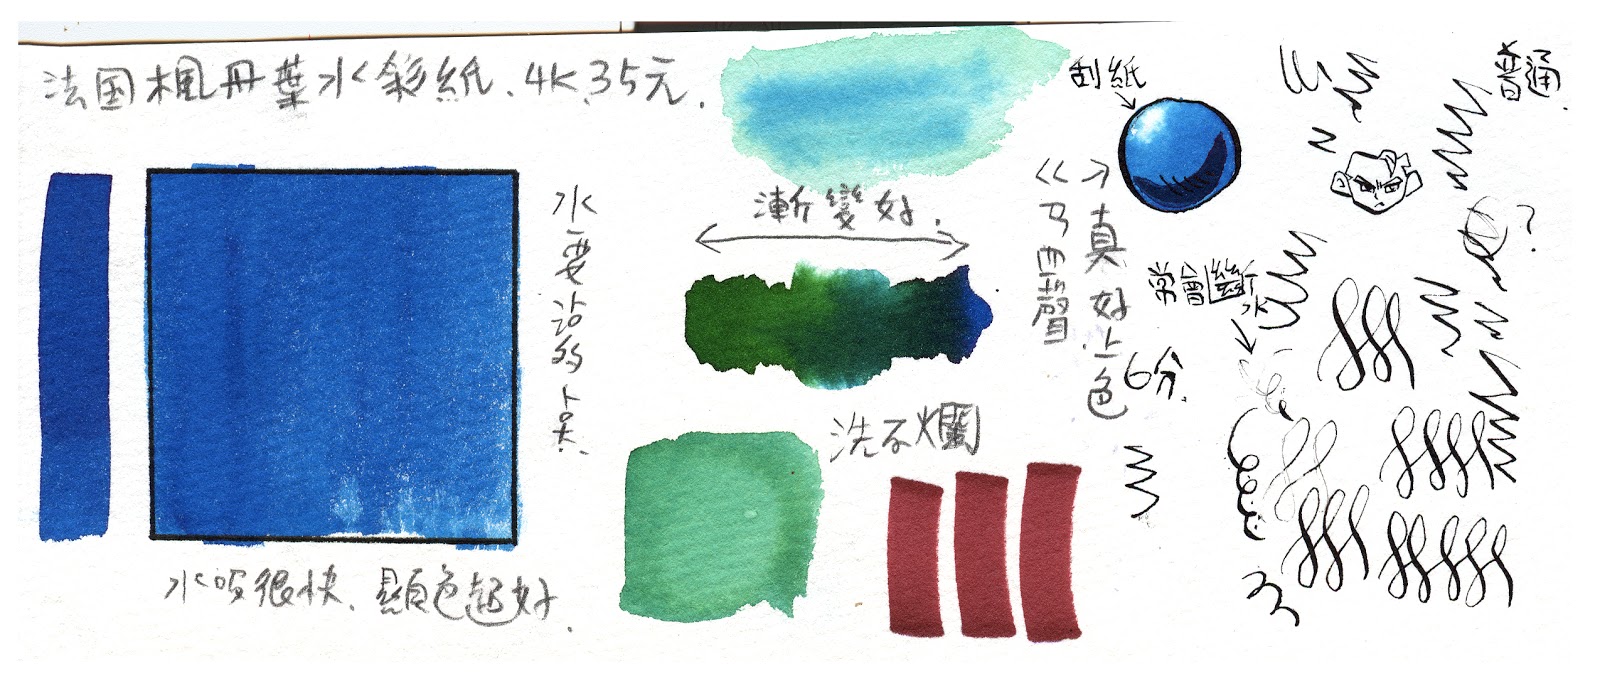 法国楓丹葉水彩紙、4K、35元.
水要沾多点.
水吸很快、顯色超好.
漸變好.
洗不爛
刮紙
真好上色
6分.
常會斷水
普通.
?